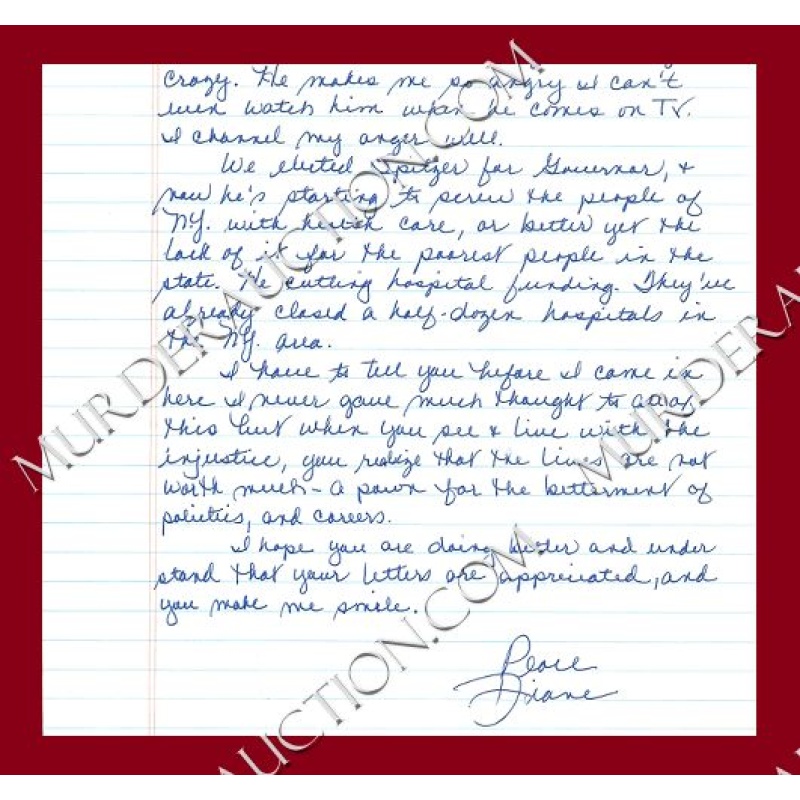 crazy. He makes me so angry I can't
even watch him when he comes on TV.
I channel my anger well.
We elected Spitzer for Governor, &
now he's starting to screw the people of
N.Y. with health care, or better yet the
lack of it for the poorest people in the
state. He cutting hospital funding. They've
already closed a half-dozen hospitals in
the N.Y. area.
I have to tell you before I came in
here I never gave much thought to
this but when you see & live with the
injustice, you realize that the lives are not
worth much - a pawn for the betterment of
politics, and careers.
I hope you are doing better and under
stand that your letters are appreciated, and
you make me smile.
Peace
Diane
MURDERAUCTION.COM